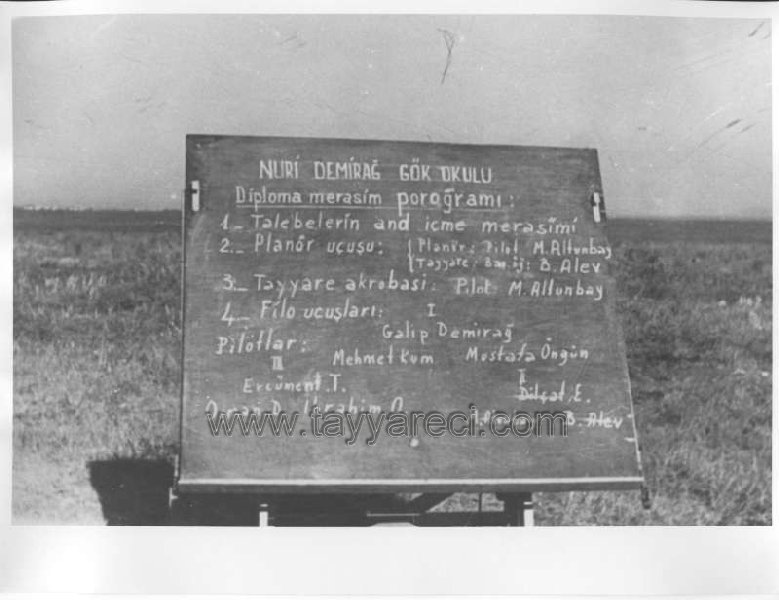 NURİ DEMİRAĞ GÖK OKULU
Diploma merasim porağramı:
1_ Talebelerin and icme merasimi
2_ Planör ucuşu: Planör: Pilot M. Altunbay
Tayyare: B. Alev
3_ Tayyare akrobasi: Pilot M. Altunbay
4_ Filo ucuşları: I
Pilotlar: Galip Demirağ
III Mehmet Kum Mustafa Öngün
Ercüment T. II
E.
D. İbrahim B. Alev
www.tayyareci.com